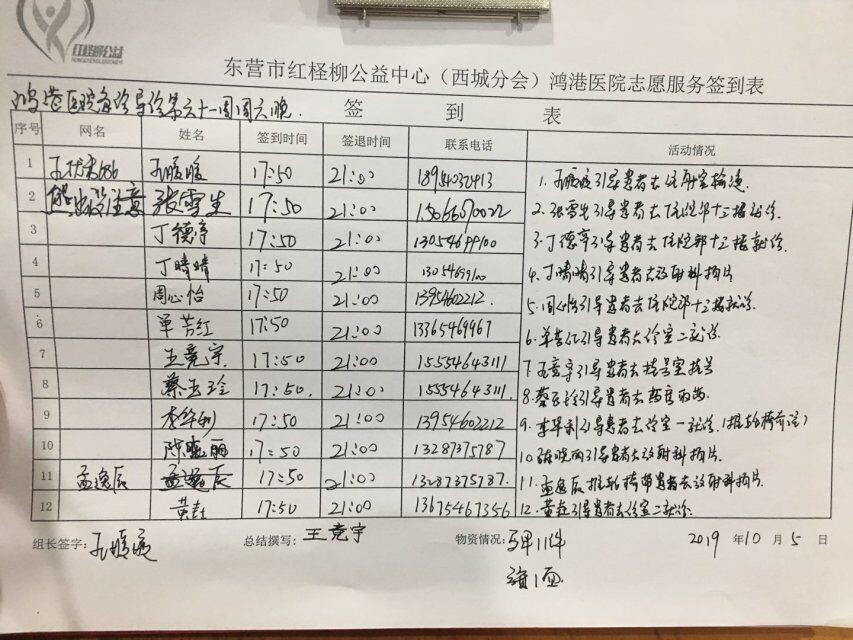 红柽柳公益
东营市红柽柳公益中心（西城分会）鸿港医院志愿服务签到表
鸿港医院急诊导诊第六十一周周六晚. 签 到 表
序号 网名 姓名 签到时间 签退时间 联系电话 活动情况
1 17:50 21:00 18954032413 1.引导患者去注射室输液
2 张雪生 17:50 21:00 15066570022 2.张雪生引导患者去住院部十二楼就诊.
3 丁德亭 17:50 21:00 13054699100 3.丁德亭引导患者去住院部十二楼就诊.
4 丁晴晴 17:50 21:00 1305469910 4.丁晴晴引导患者去放射科拍片
5 周心怡 17:50 21:00 13954602212. 5.周心怡引导患者去住院部十二楼就诊.
6 单芳红 17:50 21:00 13365469967 6.单芳红引导患者去诊室二就诊.
7 王竞宇 17:50 21:00 15554643111 7.王竞宇引导患者去挂号室挂号
8 蔡玉玲 17:50. 21:00 15554643111. 8.蔡玉玲引导患者去药房取药.
9 李华利 17:50 21:00 13954602212 9.李华利引导患者去诊室一就诊.
10 陈晓丽 17:50 21:00 13287375787 10.陈晓丽引导患者去放射科拍片.
11 孟逸辰 孟逸辰 17:50 21:00 13287375787. 11.孟逸辰推轮椅带患者去放射科拍片.
12 17:50 21:00 13675467356 12.引导患者去诊室二就诊.
组长签字: 总结撰写: 王竞宇 物资情况: 马甲11件 2019 年10 月 5 日
旗1面